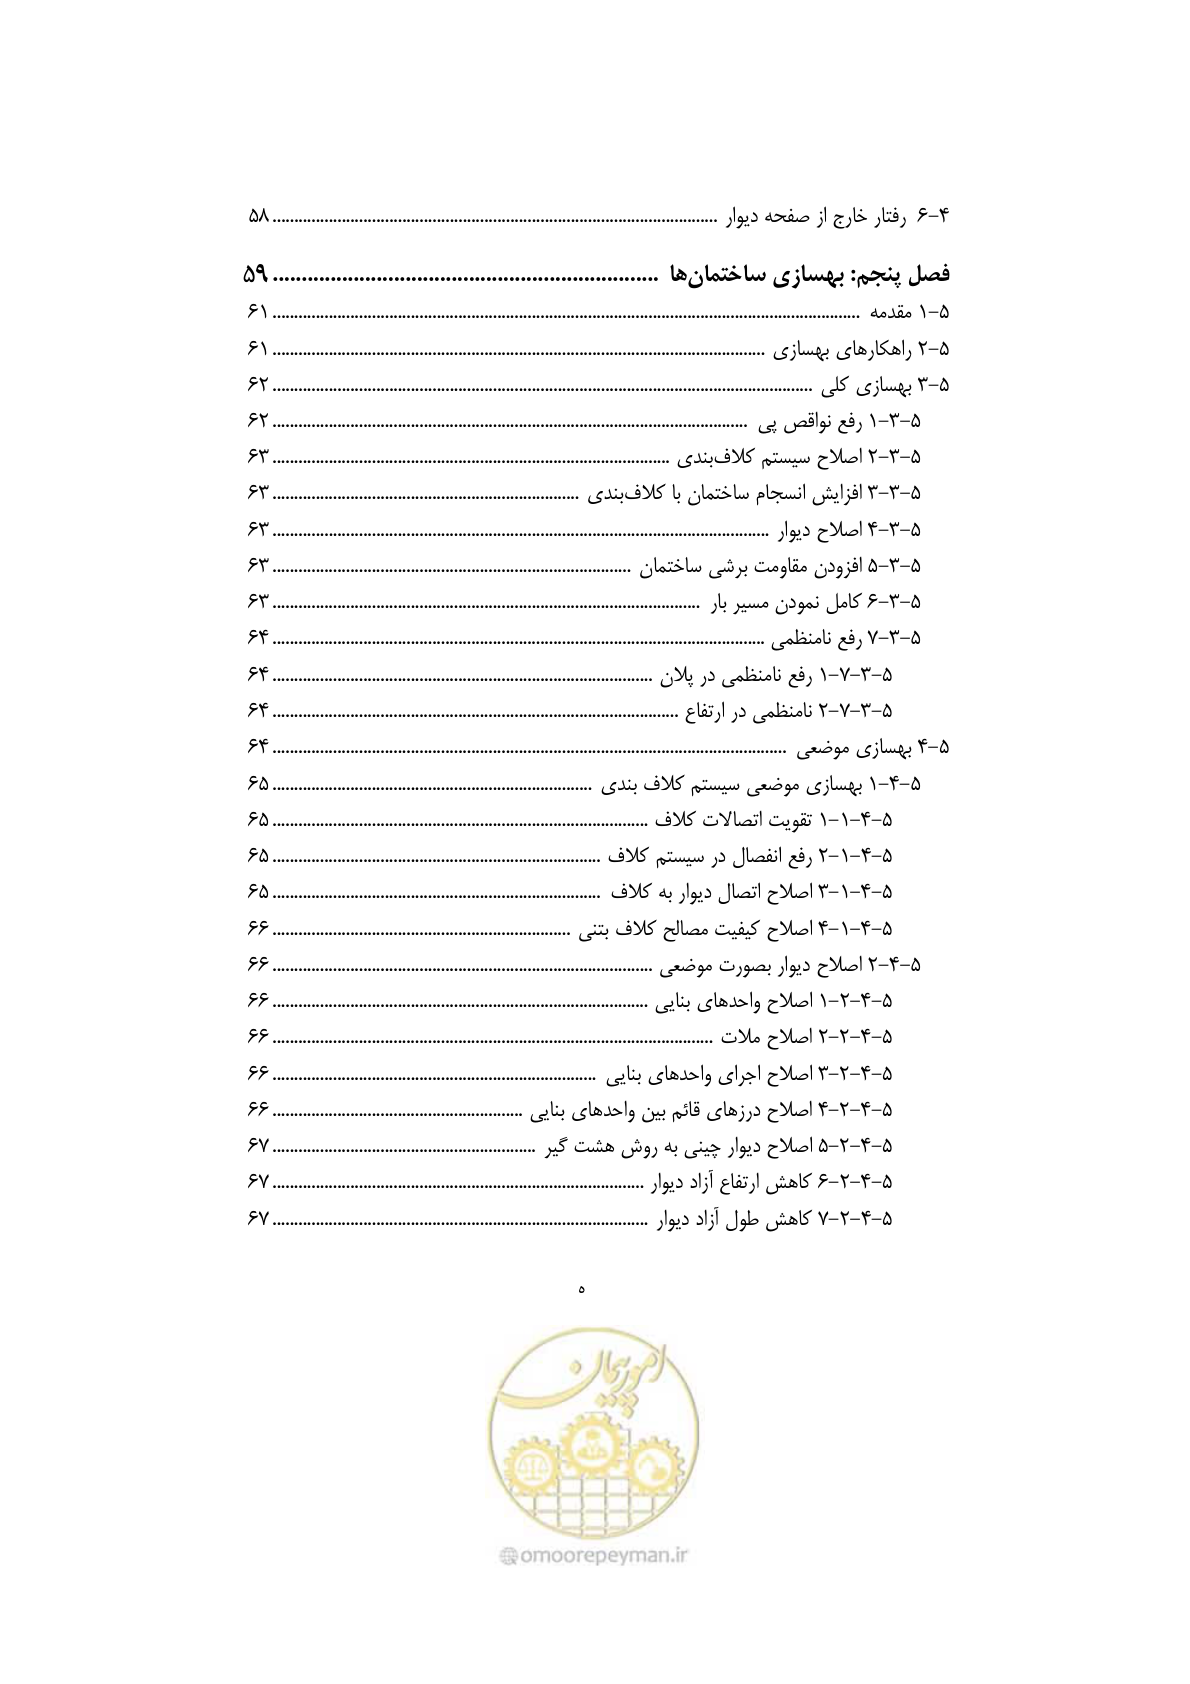 ۴-۶ رفتار خارج از صفحه دیوار ........ ۵۸
فصل پنجم: بهسازی ساختمان‌ها ........ ۵۹
۵-۱ مقدمه ........ ۶۱
۵-۲ راهکارهای بهسازی ........ ۶۱
۵-۳ بهسازی کلی ........ ۶۲
۵-۳-۱ رفع نواقص پی ........ ۶۲
۵-۳-۲ اصلاح سیستم کلاف‌بندی ........ ۶۳
۵-۳-۳ افزایش انسجام ساختمان با کلاف‌بندی ........ ۶۳
۵-۳-۴ اصلاح دیوار ........ ۶۳
۵-۳-۵ افزودن مقاومت برشی ساختمان ........ ۶۳
۵-۳-۶ کامل نمودن مسیر بار ........ ۶۳
۵-۳-۷ رفع نامنظمی ........ ۶۴
۵-۳-۷-۱ رفع نامنظمی در پلان ........ ۶۴
۵-۳-۷-۲ نامنظمی در ارتفاع ........ ۶۴
۵-۴ بهسازی موضعی ........ ۶۴
۵-۴-۱ بهسازی موضعی سیستم کلاف بندی ........ ۶۵
۵-۴-۱-۱ تقویت اتصالات کلاف ........ ۶۵
۵-۴-۱-۲ رفع انفصال در سیستم کلاف ........ ۶۵
۵-۴-۱-۳ اصلاح اتصال دیوار به کلاف ........ ۶۵
۵-۴-۱-۴ اصلاح کیفیت مصالح کلاف بتنی ........ ۶۶
۵-۴-۲ اصلاح دیوار بصورت موضعی ........ ۶۶
۵-۴-۲-۱ اصلاح واحدهای بنایی ........ ۶۶
۵-۴-۲-۲ اصلاح ملات ........ ۶۶
۵-۴-۲-۳ اصلاح اجرای واحدهای بنایی ........ ۶۶
۵-۴-۲-۴ اصلاح درزهای قائم بین واحدهای بنایی ........ ۶۶
۵-۴-۲-۵ اصلاح دیوار چینی به روش هشت گیر ........ ۶۷
۵-۴-۲-۶ کاهش ارتفاع آزاد دیوار ........ ۶۷
۵-۴-۲-۷ کاهش طول آزاد دیوار ........ ۶۷
ه
امور پیمان
@omoorepeyman.ir